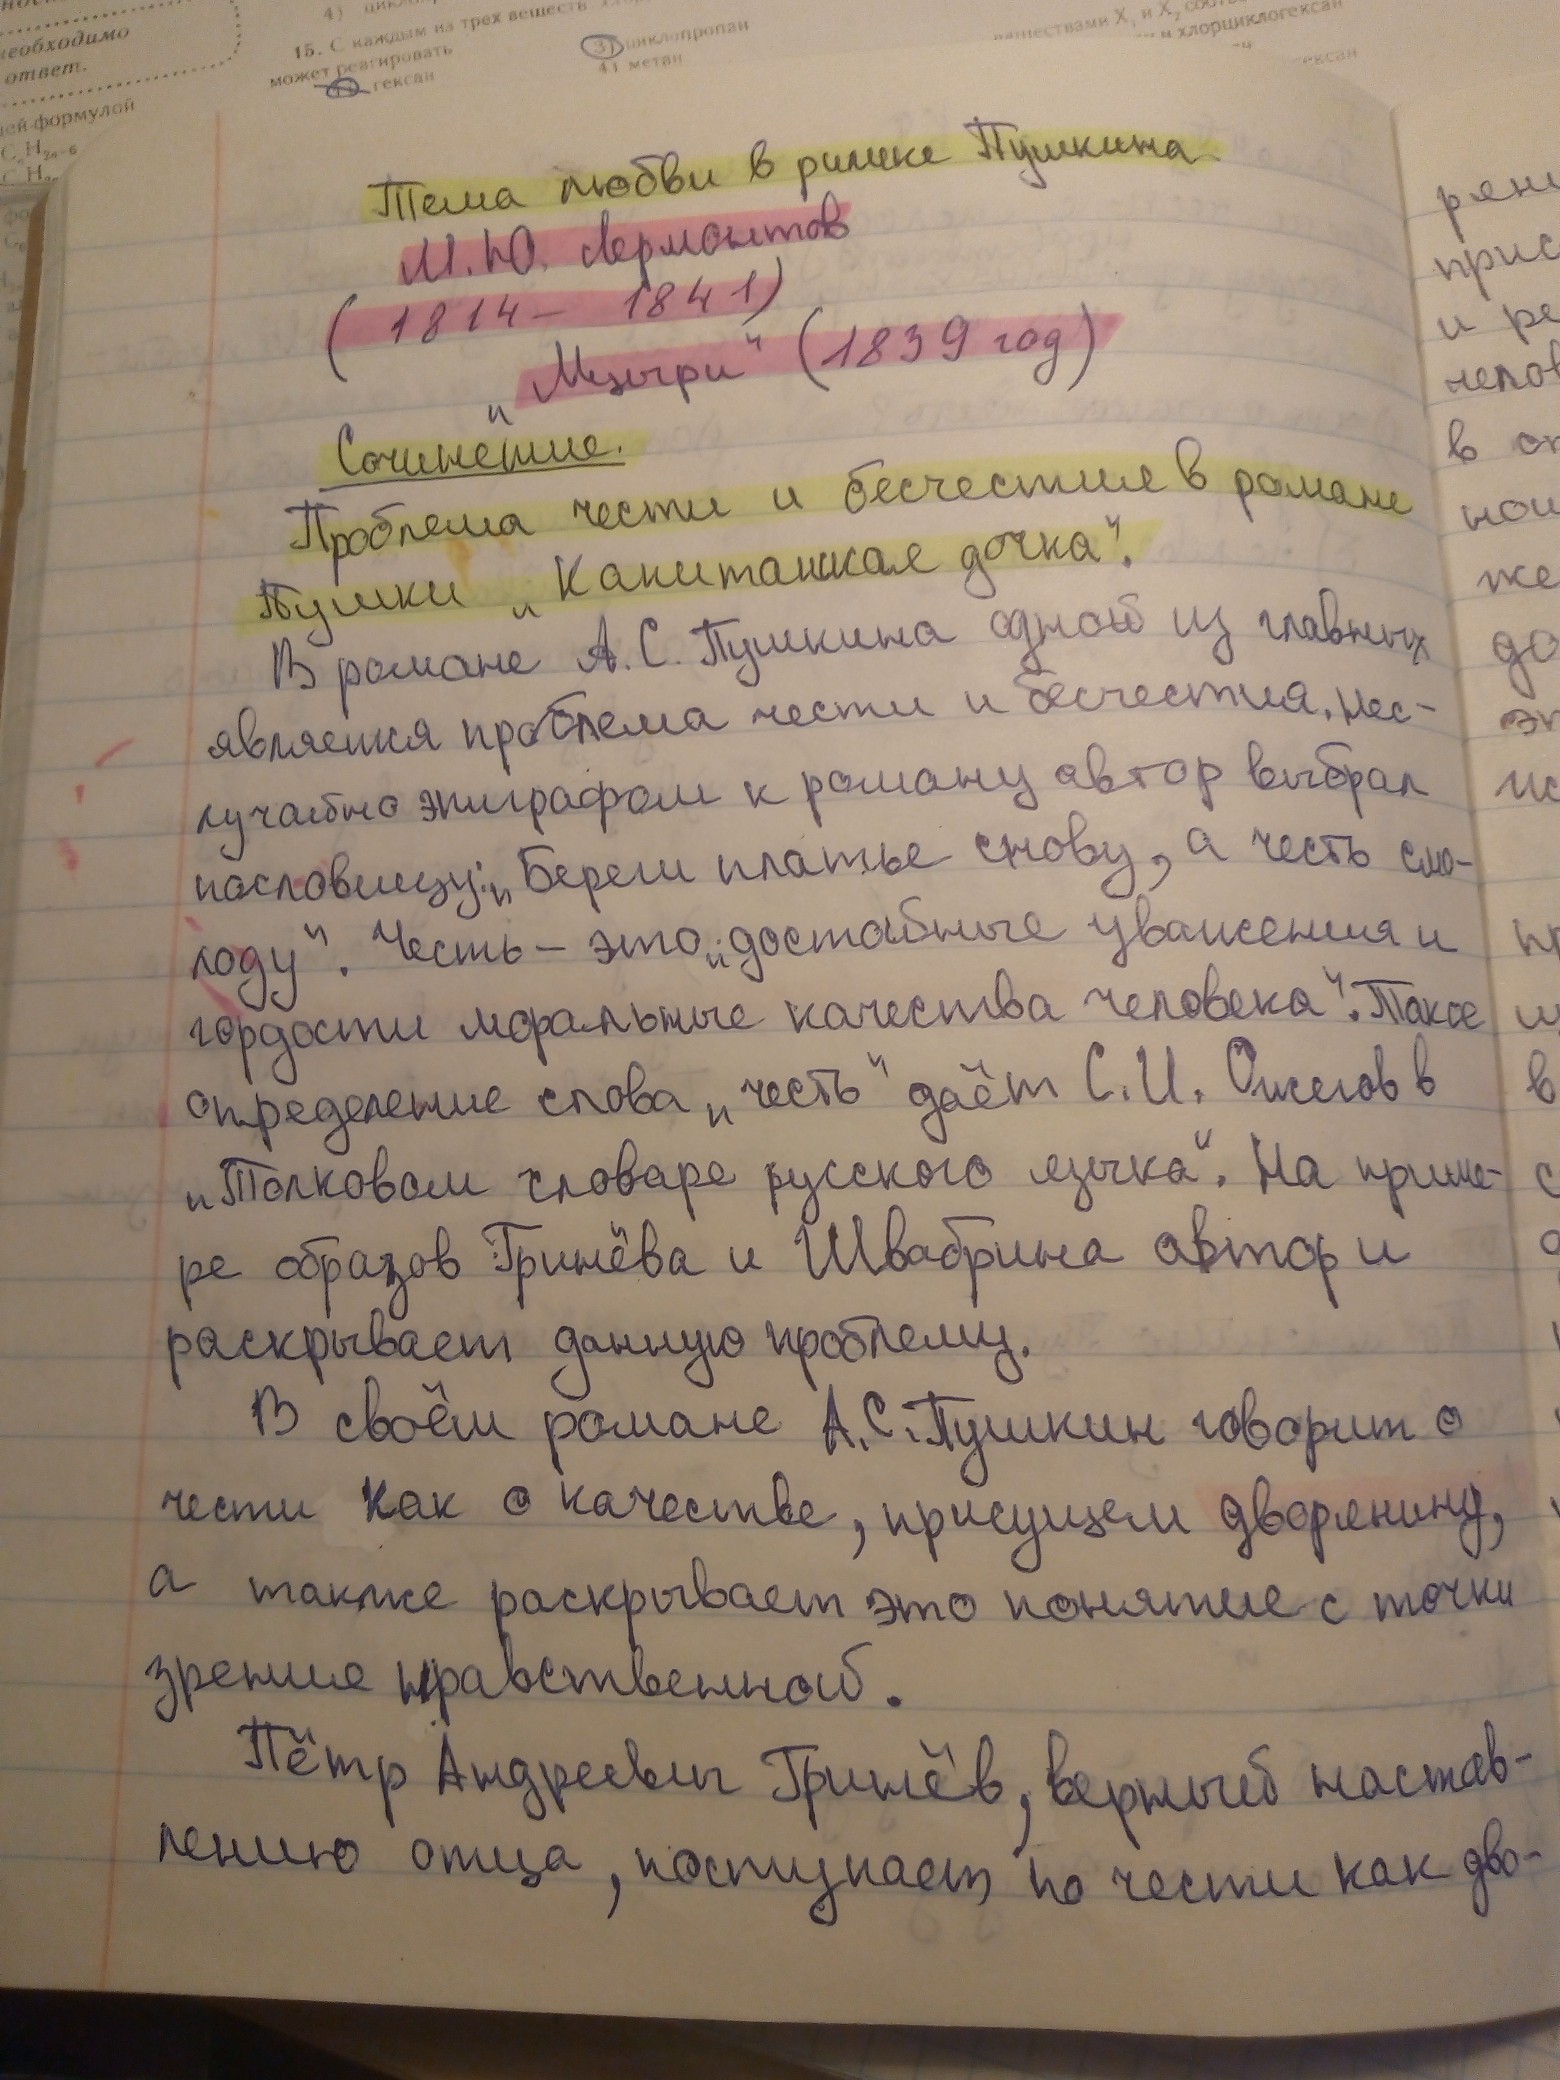 необходимо
ответ.
щей формулой
15. С каждым из трех веществ
может реагировать
гексан
3) циклопропан
4) метан
веществами X₁ и X₂
и хлорциклогексан
Тема любви в рилике Пушкина
М.Ю. Лермонтов
(1814 – 1841)
„Мцыри“ (1839 год)
Сочинение.
Проблема чести и бесчестия в романе
Пушки „Капитанская дочка“.
В романе А.С. Пушкина одной из главных
является проблема чести и бесчестия. Нес-
лучайно эпиграфом к роману автор выбрал
пословицу: „Береги платье снову, а честь смо-
лоду“. Честь – это „достойные уважения и
гордости моральные качества человека“. Такое
определение слова „честь“ даёт С.И. Ожегов в
„Толковом словаре русского языка“. На приме-
ре образов Гринёва и Швабрина автор и
раскрывает данную проблему.
В своём романе А.С. Пушкин говорит о
чести как о качестве, присущем дворянину,
а также раскрывает это понятие с точки
зрения нравственной.
Пётр Андреевич Гринёв, верный настав-
лению отца, поступает по чести как дво-